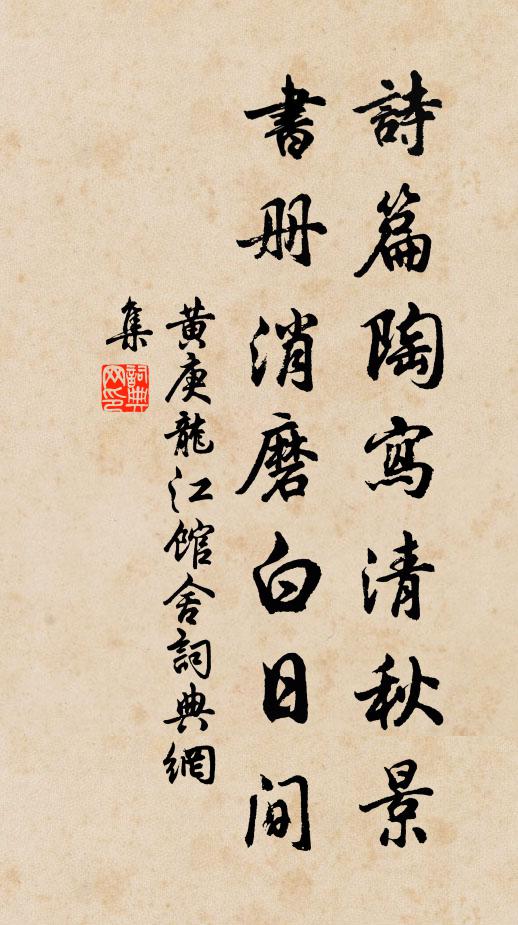 詩篇陶寫清秋景
書册消磨白日間
黃庚龍江館舍詞典網
集
詞典網印